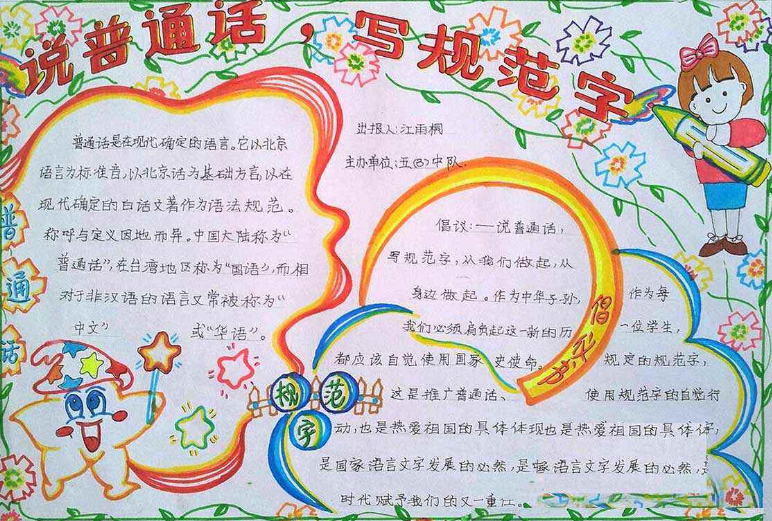 说普通话，写规范字
普通话是在现代确定的语言。它以北京
语言为标准音，以北京话为基础方言，以在
现代确定的白话文著作为语法规范。
称呼与定义因地而异。中国大陆称为“
普通话”，在台湾地区称为“国语”，而相
对于非汉语的语言又常被称为“
中文” 或“华语”。
普通话
出报人：江雨桐
主办单位：五(3)中队
倡议：——说普通话，
写规范字，从我们做起，从
身边做起。作为中华子孙， 作为每
我们必须肩负起这一新的历 一位学生，
都应该自觉使用国家 史使命。 规定的规范字，
这是推广普通话、 使用规范字的自觉行
动，也是热爱祖国的具体体现也是热爱祖国的具体体
是国家语言文字发展的必然，是 语言文字发展的必然，
时代赋予我们的又一重
倡
规范字